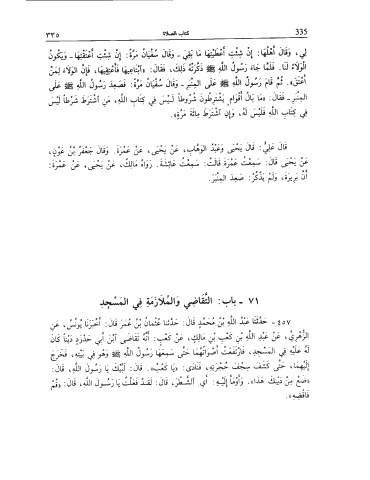 335 كتاب الصلاة ٣٣٥
لِي، وَقَالَ أَهْلُهَا: إِنْ شِئْتِ أَعْطَيْتِهَا مَا بَقِيَ ـ وَقَالَ سُفْيَانُ مَرَّةً: إِنْ شِئْتِ أَعْتَقْتِهَا ـ وَيَكُونُ
الْوَلَاءُ لَنَا. فَلَمَّا جَاءَ رَسُولُ اللَّهِ ﷺ ذَكَّرَتْهُ ذَلِكَ، فَقَالَ: «ابْتَاعِيهَا فَأَعْتِقِيهَا، فَإِنَّ الْوَلَاءَ لِمَنْ
أَعْتَقَ». ثُمَّ قَامَ رَسُولُ اللَّهِ ﷺ عَلَى الْمِنْبَرِ ـ وَقَالَ سُفْيَانُ مَرَّةً: فَصَعِدَ رَسُولُ اللَّهِ ﷺ عَلَى
الْمِنْبَرِ ـ فَقَالَ: «مَا بَالُ أَقْوَامٍ يَشْتَرِطُونَ شُرُوطاً لَيْسَ فِي كِتَابِ اللَّهِ، مَنِ اشْتَرَطَ شَرْطاً لَيْسَ
فِي كِتَابِ اللَّهِ فَلَيْسَ لَهُ، وَإِنِ اشْتَرَطَ مِائَةَ مَرَّةٍ».
قَالَ عَلِيٌّ: قَالَ يَحْيَى وَعَبْدُ الْوَهَّابِ، عَنْ يَحْيَى، عَنْ عَمْرَةَ. وَقَالَ جَعْفَرُ بْنُ عَوْنٍ،
عَنْ يَحْيَى قَالَ: سَمِعْتُ عَمْرَةَ قَالَتْ: سَمِعْتُ عَائِشَةَ. رَوَاهُ مَالِكٌ، عَنْ يَحْيَى، عَنْ عَمْرَةَ:
أَنَّ بَرِيرَةَ، وَلَمْ يَذْكُرْ: صَعِدَ الْمِنْبَرَ.
٧١ ـ باب: التَّقَاضِي وَالْمُلَازَمَةِ فِي الْمَسْجِدِ
٤٥٧ ـ حَدَّثَنَا عَبْدُ اللَّهِ بْنُ مُحَمَّدٍ قَالَ: حَدَّثَنَا عُثْمَانُ بْنُ عُمَرَ قَالَ: أَخْبَرَنَا يُونُسُ، عَنِ
الزُّهْرِيِّ، عَنْ عَبْدِ اللَّهِ بْنِ كَعْبِ بْنِ مَالِكٍ، عَنْ كَعْبٍ: أَنَّهُ تَقَاضَى ابْنَ أَبِي حَدْرَدٍ دَيْناً كَانَ
لَهُ عَلَيْهِ فِي الْمَسْجِدِ، فَارْتَفَعَتْ أَصْوَاتُهُمَا حَتَّى سَمِعَهَا رَسُولُ اللَّهِ ﷺ وَهُوَ فِي بَيْتِهِ، فَخَرَجَ
إِلَيْهِمَا، حَتَّى كَشَفَ سِجْفَ حُجْرَتِهِ، فَنَادَى: «يَا كَعْبُ». قَالَ: لَبَّيْكَ يَا رَسُولَ اللَّهِ، قَالَ:
«ضَعْ مِنْ دَيْنِكَ هَذَا». وَأَوْمَأَ إِلَيْهِ: أَيِ الشَّطْرَ، قَالَ: لَقَدْ فَعَلْتُ يَا رَسُولَ اللَّهِ، قَالَ: «قُمْ
فَاقْضِهِ».